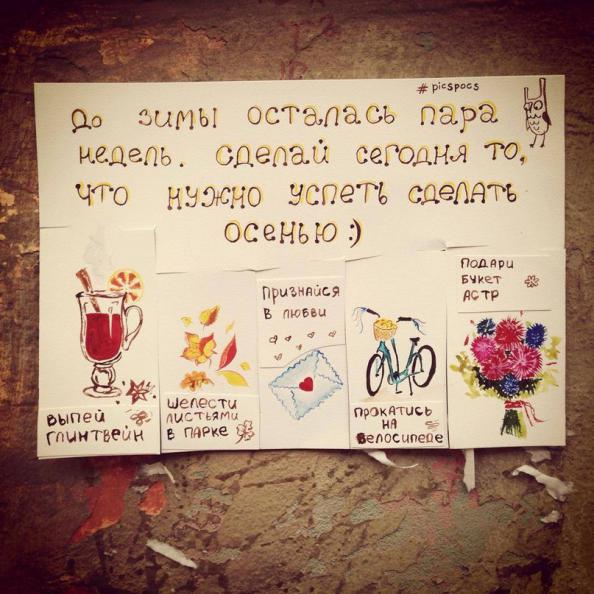 #picspocs
До зимы осталась пара
недель. сделай сегодня то,
что нужно успеть сделать
осенью :)
выпей
глинтвейн
шелести
листьями
в парке
признайся
в любви
прокатись
на
велосипеде
подари
букет
астр